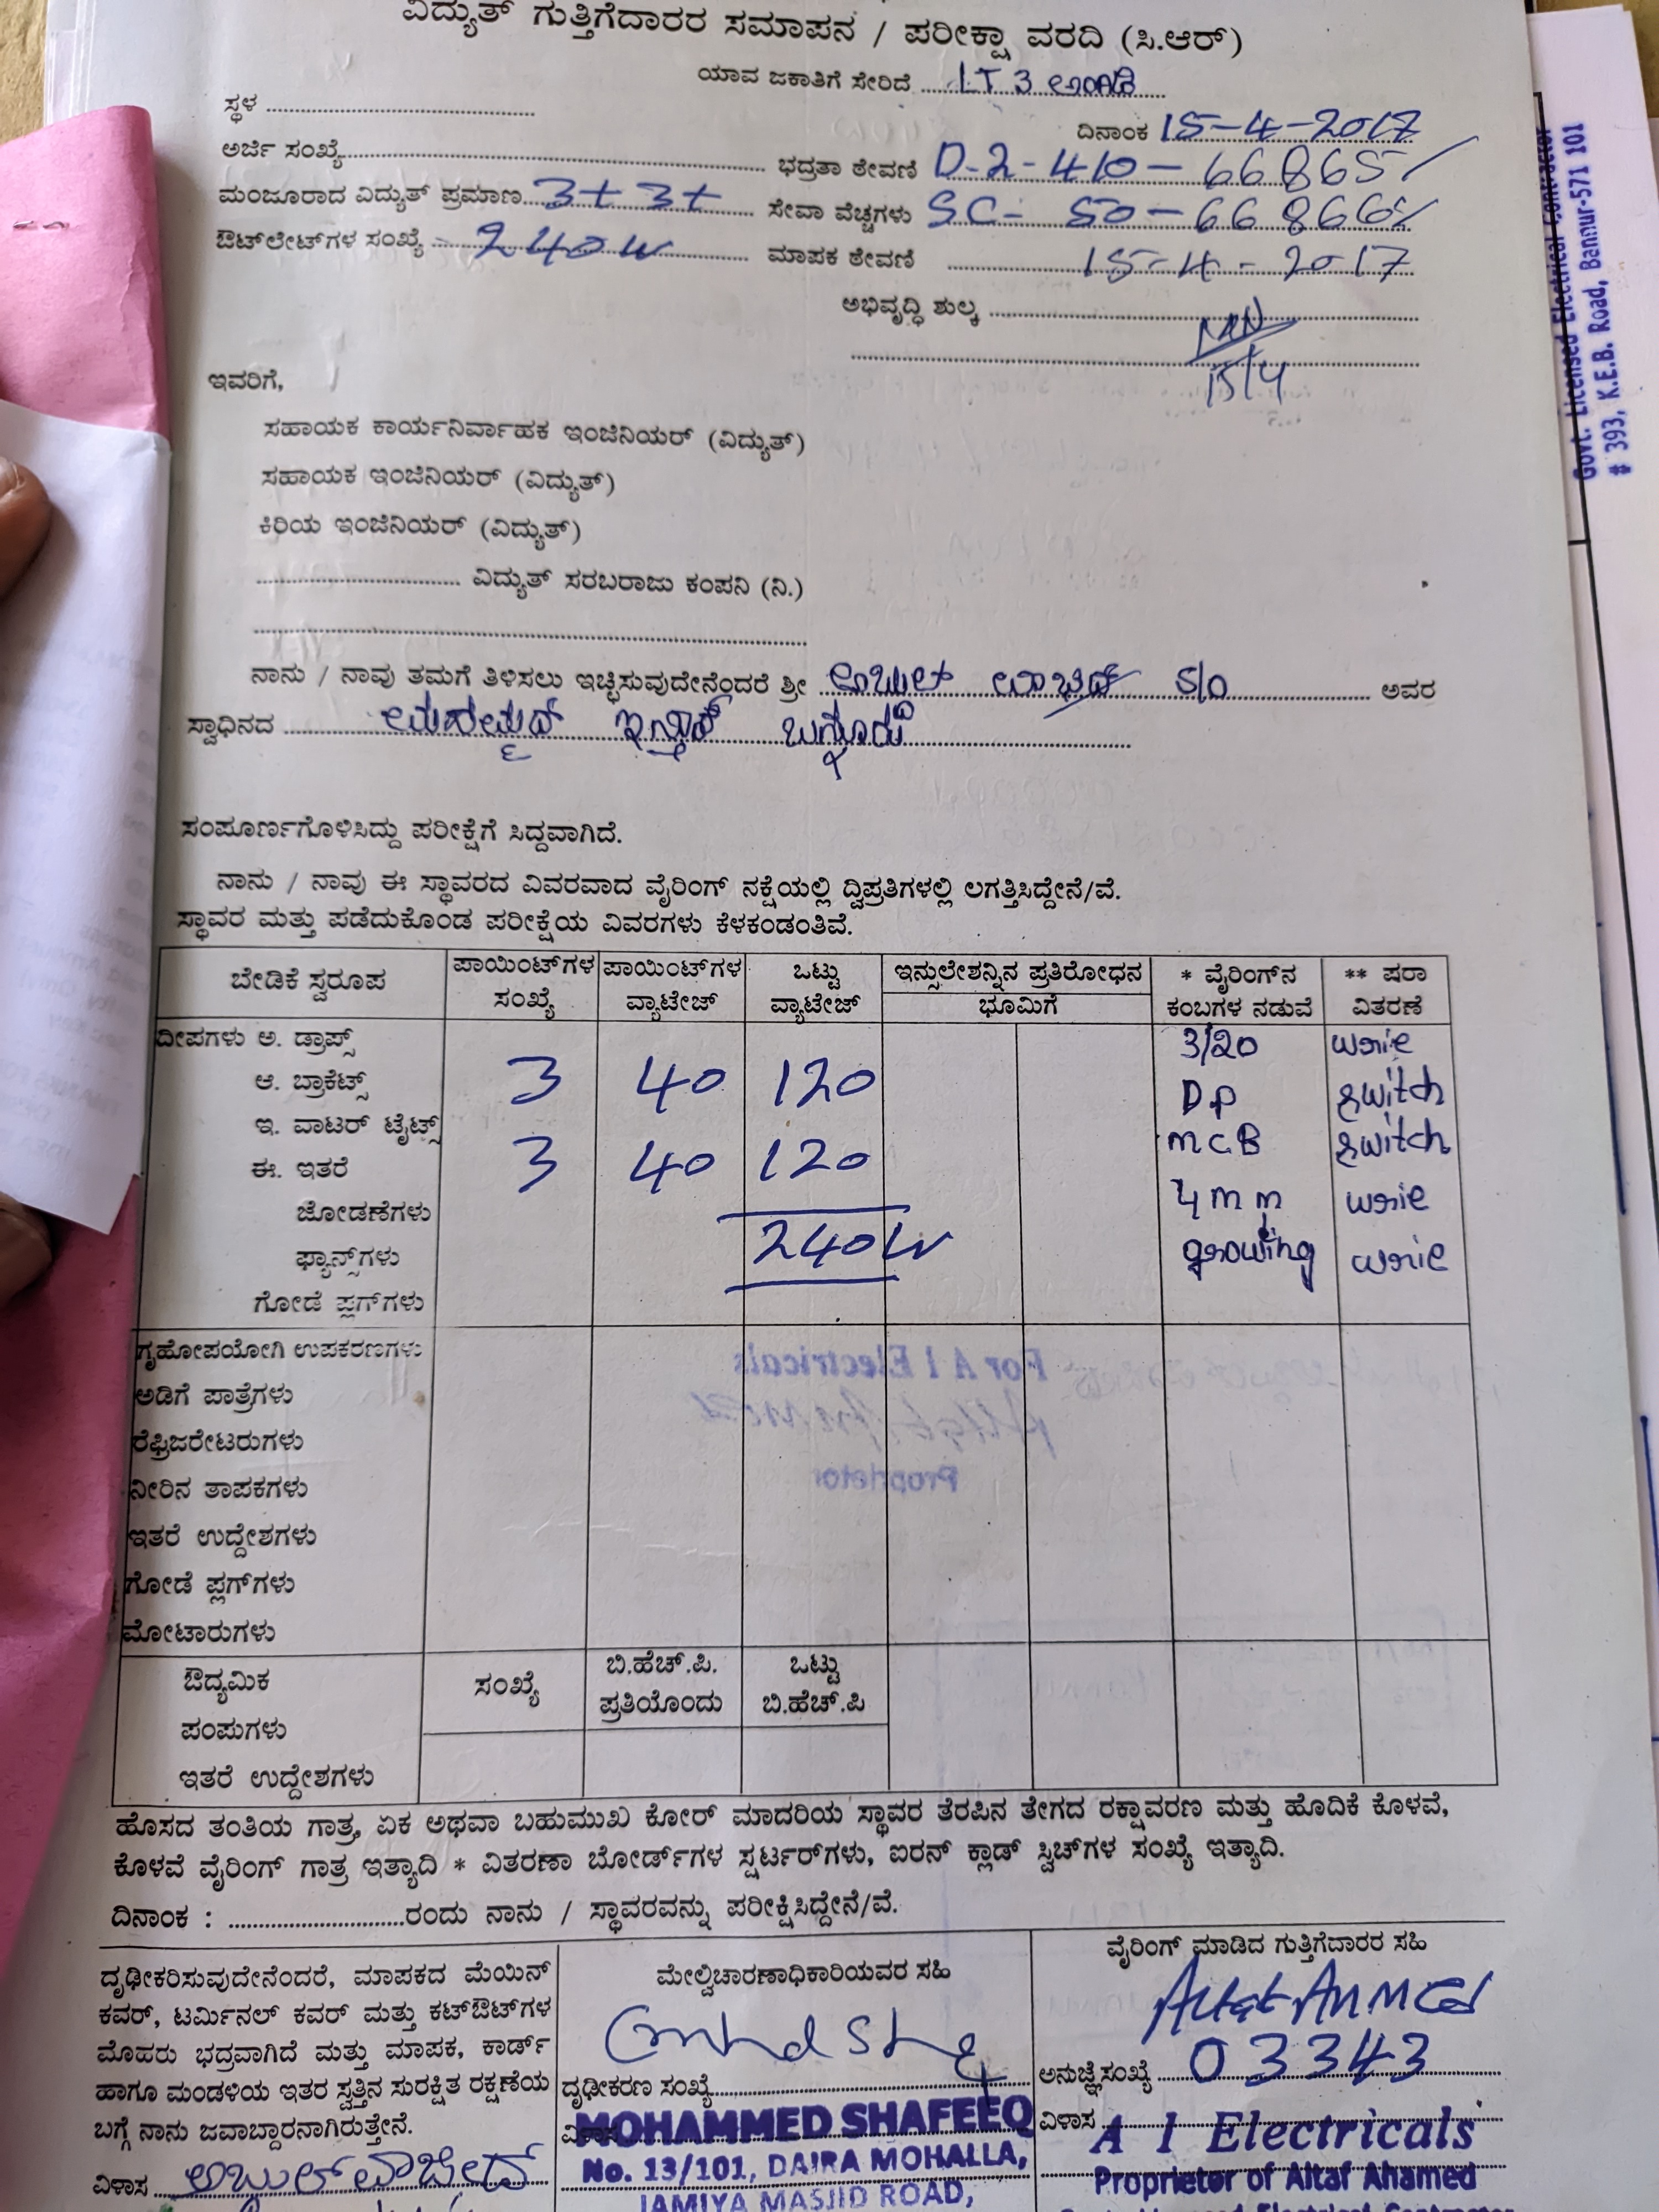 ವಿದ್ಯುತ್ ಗುತ್ತಿಗೆದಾರರ ಸಮಾಪನ / ಪರೀಕ್ಷಾ ವರದಿ (ಸಿ.ಆರ್)
ಯಾವ ಜಕಾತಿಗೆ ಸೇರಿದೆ LT 3 ಅಂಗಡಿ
ಸ್ಥಳ
ದಿನಾಂಕ 15-4-2017
ಅರ್ಜಿ ಸಂಖ್ಯೆ
ಭದ್ರತಾ ಠೇವಣಿ D-2-410-66865/
ಮಂಜೂರಾದ ವಿದ್ಯುತ್ ಪ್ರಮಾಣ 3+3+
ಸೇವಾ ವೆಚ್ಚಗಳು SC- 50-66866/
ಔಟ್‌ಲೇಟ್‌ಗಳ ಸಂಖ್ಯೆ 240W
ಮಾಪಕ ಠೇವಣಿ 15-4-2017
ಅಭಿವೃದ್ಧಿ ಶುಲ್ಕ
15/4
ಇವರಿಗೆ,
ಸಹಾಯಕ ಕಾರ್ಯನಿರ್ವಾಹಕ ಇಂಜಿನಿಯರ್ (ವಿದ್ಯುತ್)
ಸಹಾಯಕ ಇಂಜಿನಿಯರ್ (ವಿದ್ಯುತ್)
ಕಿರಿಯ ಇಂಜಿನಿಯರ್ (ವಿದ್ಯುತ್)
ವಿದ್ಯುತ್ ಸರಬರಾಜು ಕಂಪನಿ (ನಿ.)
ನಾನು / ನಾವು ತಮಗೆ ತಿಳಿಸಲು ಇಚ್ಛಿಸುವುದೇನೆಂದರೆ ಶ್ರೀ ಅಬ್ದುಲ್ ವಾಜಿದ್ S/O ಅವರ
ಸ್ವಾಧಿನದ ಮಹಮ್ಮದ್ ಬನ್ನೂರು
ಸಂಪೂರ್ಣಗೊಳಿಸಿದ್ದು ಪರೀಕ್ಷೆಗೆ ಸಿದ್ದವಾಗಿದೆ.
ನಾನು / ನಾವು ಈ ಸ್ಥಾವರದ ವಿವರವಾದ ವೈರಿಂಗ್ ನಕ್ಷೆಯಲ್ಲಿ ದ್ವಿಪ್ರತಿಗಳಲ್ಲಿ ಲಗತ್ತಿಸಿದ್ದೇನೆ/ವೆ.
ಸ್ಥಾವರ ಮತ್ತು ಪಡೆದುಕೊಂಡ ಪರೀಕ್ಷೆಯ ವಿವರಗಳು ಕೆಳಕಂಡಂತಿವೆ.
ಬೇಡಿಕೆ ಸ್ವರೂಪ
ಪಾಯಿಂಟ್‌ಗಳ ಸಂಖ್ಯೆ
ಪಾಯಿಂಟ್‌ಗಳ ವ್ಯಾಟೇಜ್
ಒಟ್ಟು ವ್ಯಾಟೇಜ್
ಇನ್ಸುಲೇಶನ್ನಿನ ಪ್ರತಿರೋಧನ
ಭೂಮಿಗೆ
* ವೈರಿಂಗ್‌ನ ಕಂಬಗಳ ನಡುವೆ
** ಷರಾ ವಿತರಣೆ
ದೀಪಗಳು ಅ. ಡ್ರಾಪ್ಸ್ 3/20 wrie
ಆ. ಬ್ರಾಕೆಟ್ಸ್ 3 40 120 DP switch
ಇ. ವಾಟರ್ ಟೈಟ್ಸ್ MCB switch
ಈ. ಇತರೆ 3 40 120
ಜೋಡಣೆಗಳು 4mm wrie
ಫ್ಯಾನ್ಸ್‌ಗಳು 240W wrie
ಗೋಡೆ ಪ್ಲಗ್‌ಗಳು
ಗೃಹೋಪಯೋಗಿ ಉಪಕರಣಗಳು
ಅಡಿಗೆ ಪಾತ್ರೆಗಳು
ರೆಫ್ರಿಜರೇಟರುಗಳು
ನೀರಿನ ತಾಪಕಗಳು
ಇತರೆ ಉದ್ದೇಶಗಳು
ಗೋಡೆ ಪ್ಲಗ್‌ಗಳು
ಮೋಟಾರುಗಳು
ಔದ್ಯಮಿಕ
ಸಂಖ್ಯೆ
ಬಿ.ಹೆಚ್.ಪಿ. ಪ್ರತಿಯೊಂದು
ಒಟ್ಟು ಬಿ.ಹೆಚ್.ಪಿ
ಪಂಪುಗಳು
ಇತರೆ ಉದ್ದೇಶಗಳು
ಹೊಸದ ತಂತಿಯ ಗಾತ್ರ, ಏಕ ಅಥವಾ ಬಹುಮುಖ ಕೋರ್ ಮಾದರಿಯ ಸ್ಥಾವರ ತೆರಪಿನ ತೇಗದ ರಕ್ಷಾವರಣ ಮತ್ತು ಹೊದಿಕೆ ಕೊಳವೆ,
ಕೊಳವೆ ವೈರಿಂಗ್ ಗಾತ್ರ ಇತ್ಯಾದಿ * ವಿತರಣಾ ಬೋರ್ಡ್‌ಗಳ ಸ್ಟರ್ಟರ್‌ಗಳು, ಐರನ್ ಕ್ಲಾಡ್ ಸ್ವಿಚ್‌ಗಳ ಸಂಖ್ಯೆ ಇತ್ಯಾದಿ.
ದಿನಾಂಕ : ರಂದು ನಾನು / ಸ್ಥಾವರವನ್ನು ಪರೀಕ್ಷಿಸಿದ್ದೇನೆ/ವೆ.
ದೃಢೀಕರಿಸುವುದೇನೆಂದರೆ, ಮಾಪಕದ ಮೆಯಿನ್
ಕವರ್, ಟರ್ಮಿನಲ್ ಕವರ್ ಮತ್ತು ಕಟ್‌ಔಟ್‌ಗಳ
ಮೊಹರು ಭದ್ರವಾಗಿದೆ ಮತ್ತು ಮಾಪಕ, ಕಾರ್ಡ್
ಹಾಗೂ ಮಂಡಳಿಯ ಇತರ ಸ್ವತ್ತಿನ ಸುರಕ್ಷಿತ ರಕ್ಷಣೆಯ
ಬಗ್ಗೆ ನಾನು ಜವಾಬ್ದಾರನಾಗಿರುತ್ತೇನೆ.
ವಿಳಾಸ ಅಬ್ದುಲ್ ವಾಜೀದ್
ಮೇಲ್ವಿಚಾರಣಾಧಿಕಾರಿಯವರ ಸಹಿ
ದೃಢೀಕರಣ ಸಂಖ್ಯೆ
MOHAMMED SHAFEEQ
No. 13/101, DAIRA MOHALLA,
JAMIYA MASJID ROAD,
ವೈರಿಂಗ್ ಮಾಡಿದ ಗುತ್ತಿಗೆದಾರರ ಸಹಿ
Altaf Ahmed
ಅನುಜ್ಞೆ ಸಂಖ್ಯೆ 03343
ವಿಳಾಸ A 1 Electricals
Proprietor of Altaf Ahamed
Govt. Licensed Electrical Contractor
# 393, K.E.B. Road, Bannur-571 101
For A 1 Electricals
Proprietor